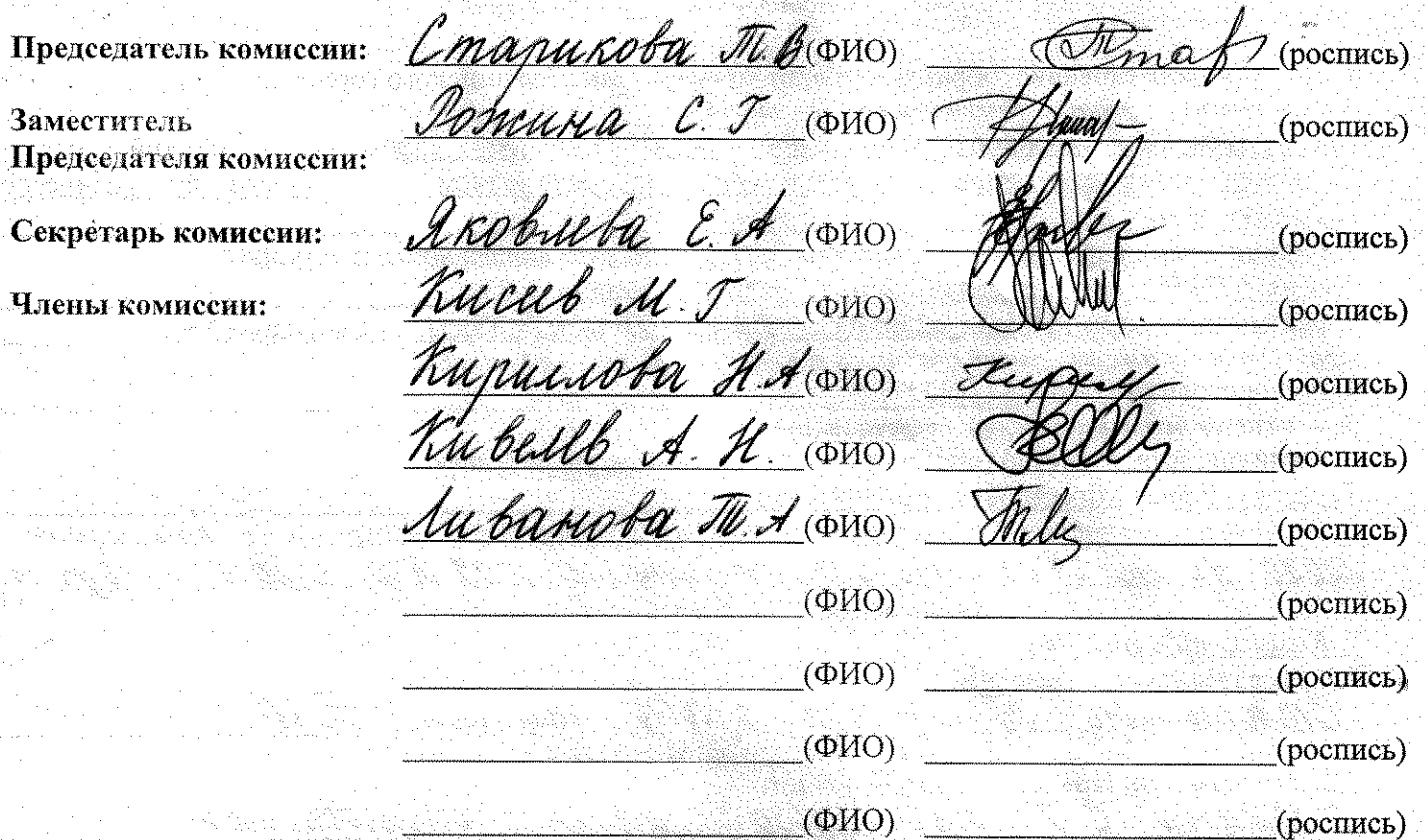 Председатель комиссии: Старикова Т.В (ФИО) (роспись)
Заместитель Рожина С. Г (ФИО) (роспись)
Председателя комиссии:
Секретарь комиссии: Яковлева Е. А (ФИО) (роспись)
Члены комиссии: М. Г (ФИО) (роспись)
Кириллова Н.А (ФИО) (роспись)
А. Н. (ФИО) (роспись)
Ливанова Т.А (ФИО) (роспись)
(ФИО) (роспись)
(ФИО) (роспись)
(ФИО) (роспись)
(ФИО) (роспись)